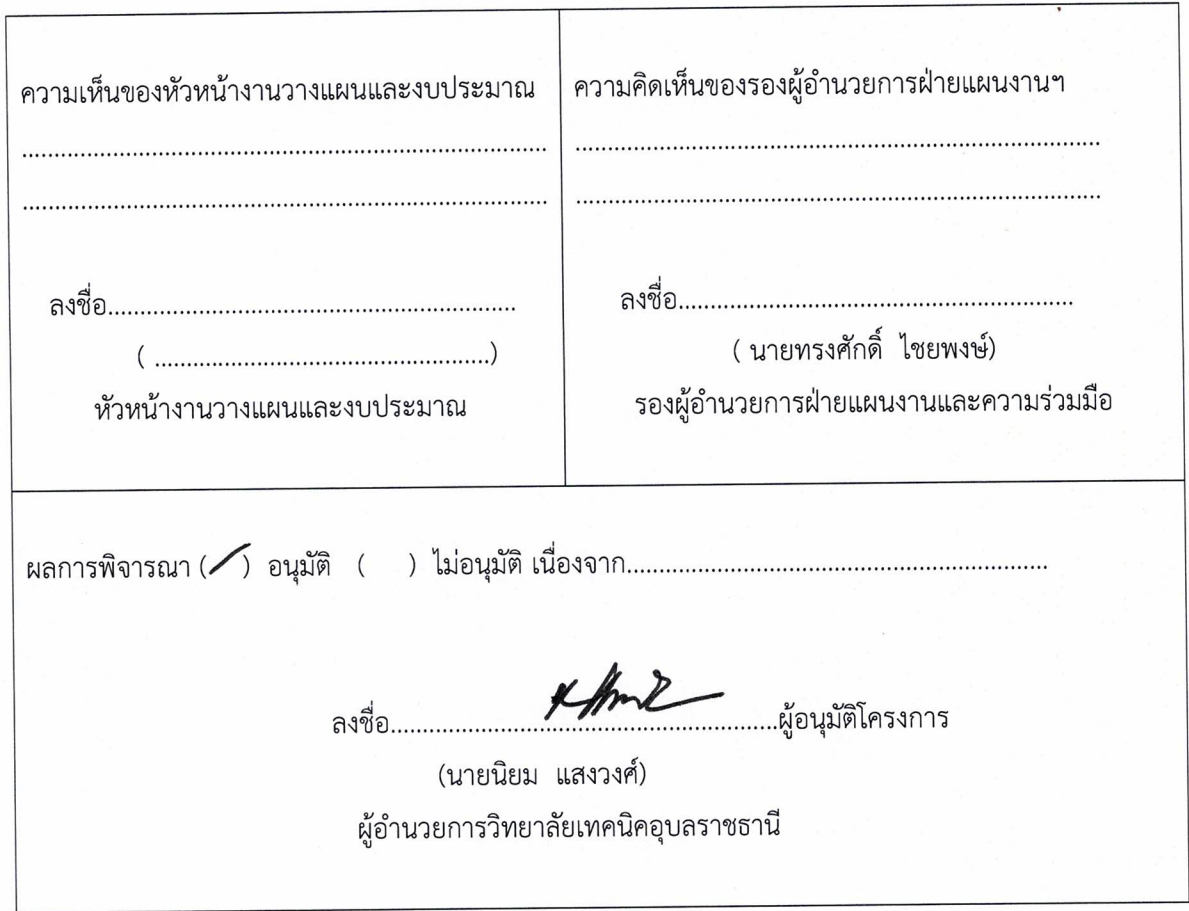 ความเห็นของหัวหน้างานวางแผนและงบประมาณ
................................................................................
................................................................................
ลงชื่อ..............................................................
( ...................................................)
หัวหน้างานวางแผนและงบประมาณ
ความคิดเห็นของรองผู้อำนวยการฝ่ายแผนงานฯ
................................................................................
................................................................................
ลงชื่อ............................................................
( นายทรงศักดิ์ ไชยพงษ์)
รองผู้อำนวยการฝ่ายแผนงานและความร่วมมือ
ผลการพิจารณา (/) อนุมัติ ( ) ไม่อนุมัติ เนื่องจาก................................................................
ลงชื่อ...........................................................ผู้อนุมัติโครงการ
(นายนิยม แสงวงศ์)
ผู้อำนวยการวิทยาลัยเทคนิคอุบลราชธานี